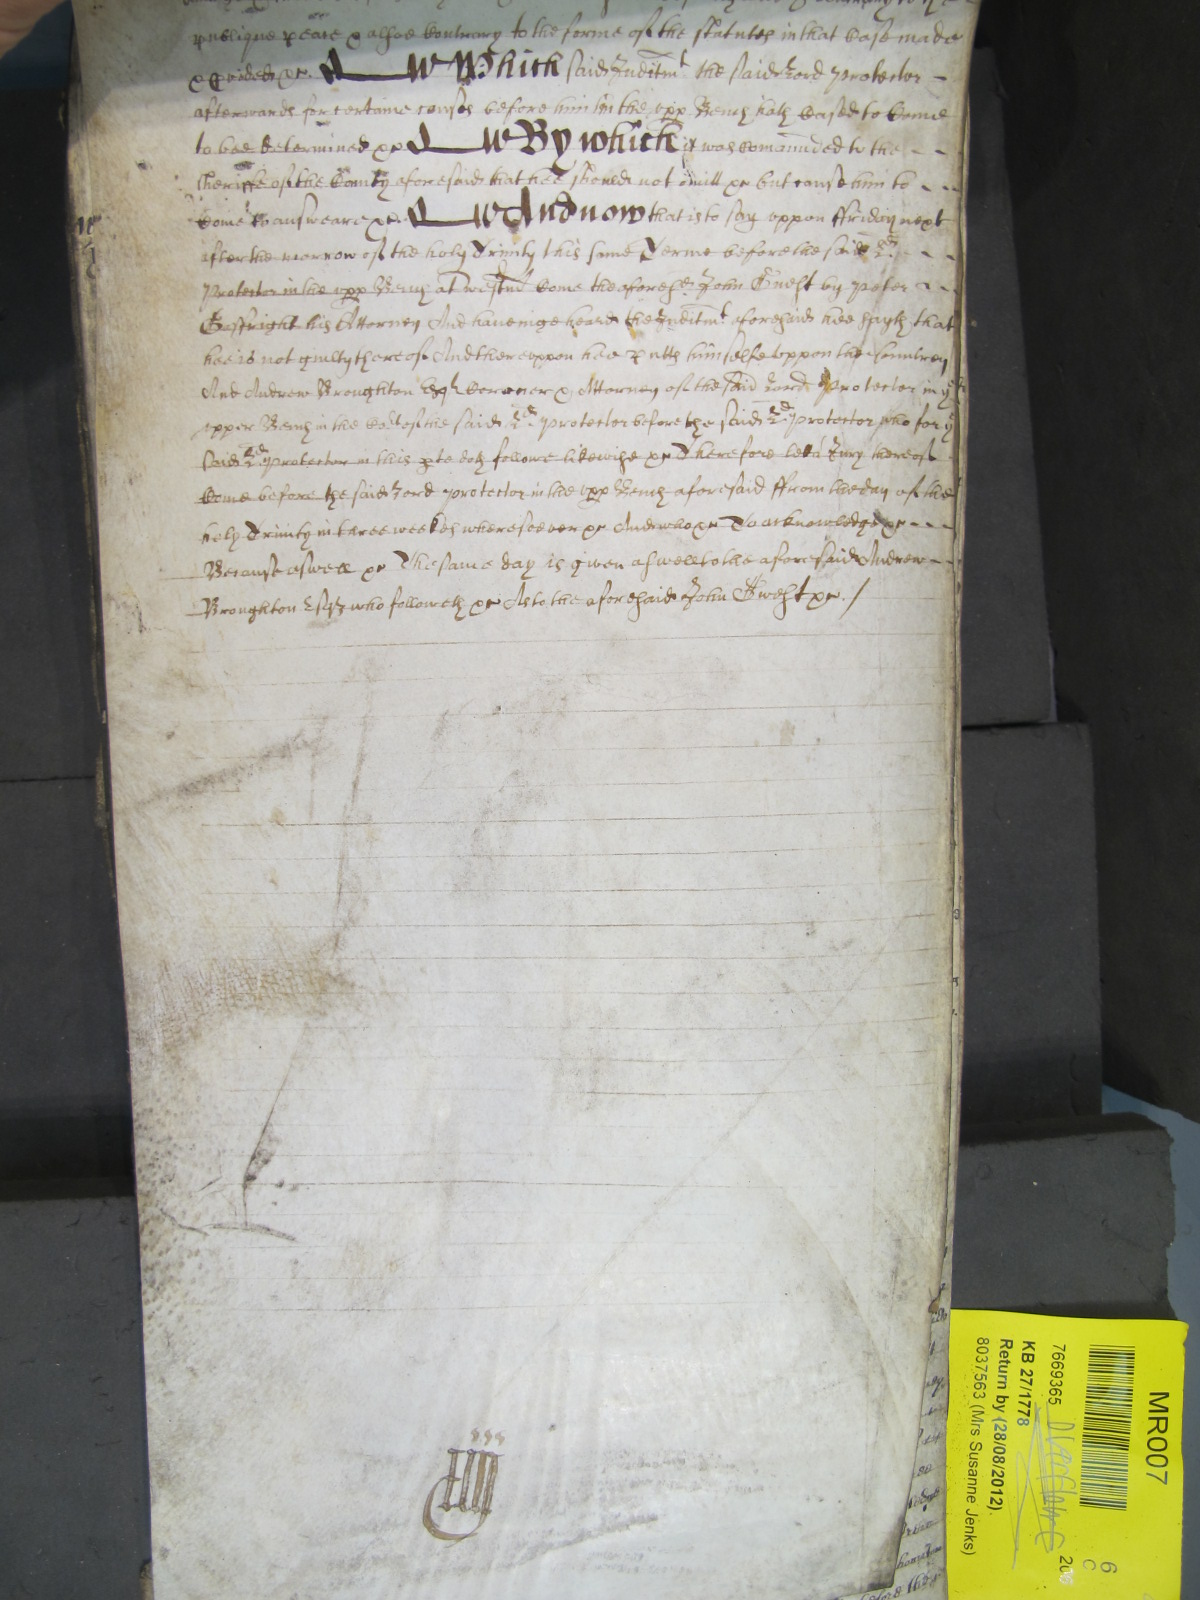 publique peace & alsoe Contrary to the forme of the statutes in that Case made
& p[ro]vided &c. Which said Inditmt the said Lord Protector
afterwards for certaine causes before him in the upp Bench hath Caused to Come
to bee determined &c By which it was Comaunded to the
Sheriffe of the County aforesaid that hee should not omitt &c but cause him to
Come to answeare &c. And now that is to say uppon ffriday next
after the morrow of the holy Trinity this same Terme before the said Ld
Protector in the upp Bench at Westmr Come the aforesd John Guest by Peter
his Attorney And haveinge heard the Inditmt aforesaid hee sayth that
hee is not guilty thereof And thereuppon hee putts himselfe uppon the Countrey
And Andrew Broughton Esqr Coroner & Attorney of the said Lord Protector in ye
upper Bench in the Cort of the said Ld Protector before the said Ld Protector who for ye
said Ld Protector in this pte doth followe likewise &c Therefore lett a Jury thereof
Come before the said Lord Protector in the upp Bench aforesaid ffrom the day of the
holy Trinity in three weekes wheresoever &c And who &c To acknowledge &c
Because aswell &c The same day is given aswell to the aforesaid Andrew
Broughton Esqr who followeth &c As to the aforesaid John Gwest &c. /
MR007
7669365
KB 27/1778
Return by (28/08/2012)
8037563 (Mrs Susanne Jenks)
6
C